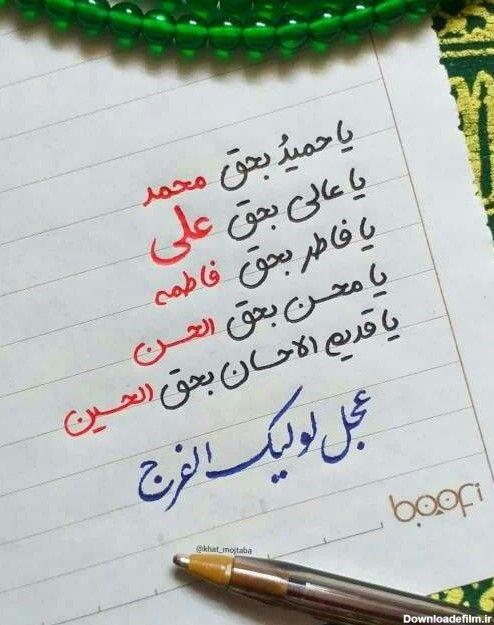 یا حمیدُ بحق محمد
یا عالی بحق علی
یا فاطر بحق فاطمه
یا محسن بحق الحسن
یا قدیم الاحسان بحق الحسین
عجل لولیک الفرج
boofi
@khat_mojtaba
Downloadefilm.ir